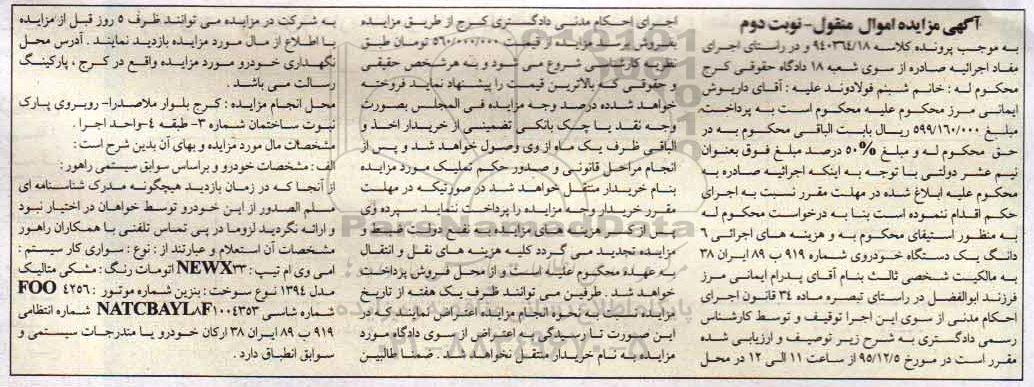 آگهی مزایده اموال منقول- نوبت دوم
به موجب پرونده کلاسه ۹۴۰۳۶۴/۱۸ و در راستای اجرای
مفاد اجرائیه صادره از سوی شعبه ۱۸ دادگاه حقوقی کرج
محکوم له : خانم شبنم فولادوند علیه : آقای داریوش
ایمانی مرز محکوم علیه محکوم است به پرداخت
مبلغ ۵۹۹/۱۶۰/۰۰۰ ریال بابت الباقی محکوم به در
حق محکوم له و مبلغ ۵۰% درصد مبلغ فوق بعنوان
نیم عشر دولتی با توجه به اینکه اجرائیه صادره به
محکوم علیه ابلاغ شده در مهلت مقرر نسبت به اجرای
حکم اقدام ننموده است بنا به درخواست محکوم له
به منظور استیفای محکوم به و هزینه های اجرائی ۶
دانگ یک دستگاه خودروی شماره ۹۱۹ ب ۸۹ ایران ۳۸
به مالکیت شخصی ثالث بنام آقای پدرام ایمانی مرز
فرزند ابوالفضل در راستای تبصره ماده ۳۴ قانون اجرای
احکام مدنی از سوی این اجرا توقیف و توسط کارشناس
رسمی دادگستری به شرح زیر توصیف و ارزیابی شده
مقرر است در مورخ ۹۵/۱۲/۵ از ساعت ۱۱ الی ۱۲ در محل
اجرای احکام مدنی دادگستری کرج از طریق مزایده
بفروش برسد مزایده از قیمت ۵۶۰/۰۰۰/۰۰۰ تومان طبق
نظریه کارشناسی شروع می شود و به هر شخص حقیقی
و حقوقی که بالاترین قیمت را پیشنهاد نماید فروخته
خواهد شد ده درصد وجه مزایده فی المجلس بصورت
وجه نقد یا چک بانکی تضمینی از خریدار اخذ و
الباقی ظرف یک ماه از وی وصول خواهد شد و پس از
انجام مراحل قانونی و صدور حکم تملیک مورد مزایده
بنام خریدار منتقل خواهد شد در صورتیکه در مهلت
مقرر خریدار وجه مزایده را پرداخت ننماید سپرده وی
پس از کسر هزینه های مزایده به نفع دولت ضبط و
مزایده تجدید می گردد کلیه هزینه های نقل و انتقال
به عهده محکوم علیه است و از محل فروش پرداخت
خواهد شد . طرفین می توانند ظرف یک هفته از تاریخ
مزایده نسبت به نحوه انجام مزایده اعتراض نمایند که در
این صورت تا رسیدگی به اعتراض از سوی دادگاه مورد
مزایده به نام خریدار منتقل نخواهد شد . ضمنا طالبین
به شرکت در مزایده می توانند ظرف ۵ روز قبل از مزایده
با اطلاع از مال مورد مزایده بازدید نمایند . آدرس محل
نگهداری خودرو مورد مزایده واقع در کرج ، پارکینگ
رسالت می باشد .
محل انجام مزایده : کرج بلوار ملاصدرا- روبروی پارک
نبوت ساختمان شماره ۳- طبقه ۴-واحد اجرا .
مشخصات مال مورد مزایده و بهای آن بدین شرح است :
الف : مشخصات خودرو و براساس سوابق سیستمی راهور :
از آنجا که در زمان بازدید هیچگونه مدرک شناسنامه ای
مسلم الصدور از این خودرو توسط خواهان در اختیار نبود
و ارائه نگردید لزوما در پی تماس تلفنی با همکاران راهور
مشخصات آن استعلام و عبارتند از : نوع : سواری کار سیستم :
ام وی ام تیپ : NEWX۳۳ اتومات رنگ : مشکی متالیک
مدل ۱۳۹۴ نوع سوخت : بنزین شماره موتور : ۴۲۵۶ FOO
شماره شاسی NATCBAYL۸F۱۰۰۴۳۵۳ شماره انتظامی
۹۱۹ ب ۸۹ ایران ۳۸ ارکان خودرو با مندرجات سیستمی و
سوابق انطباق دارد .
ParsNamadData
۰۲۱-۸۸۳۴۹۶۷۰-۵